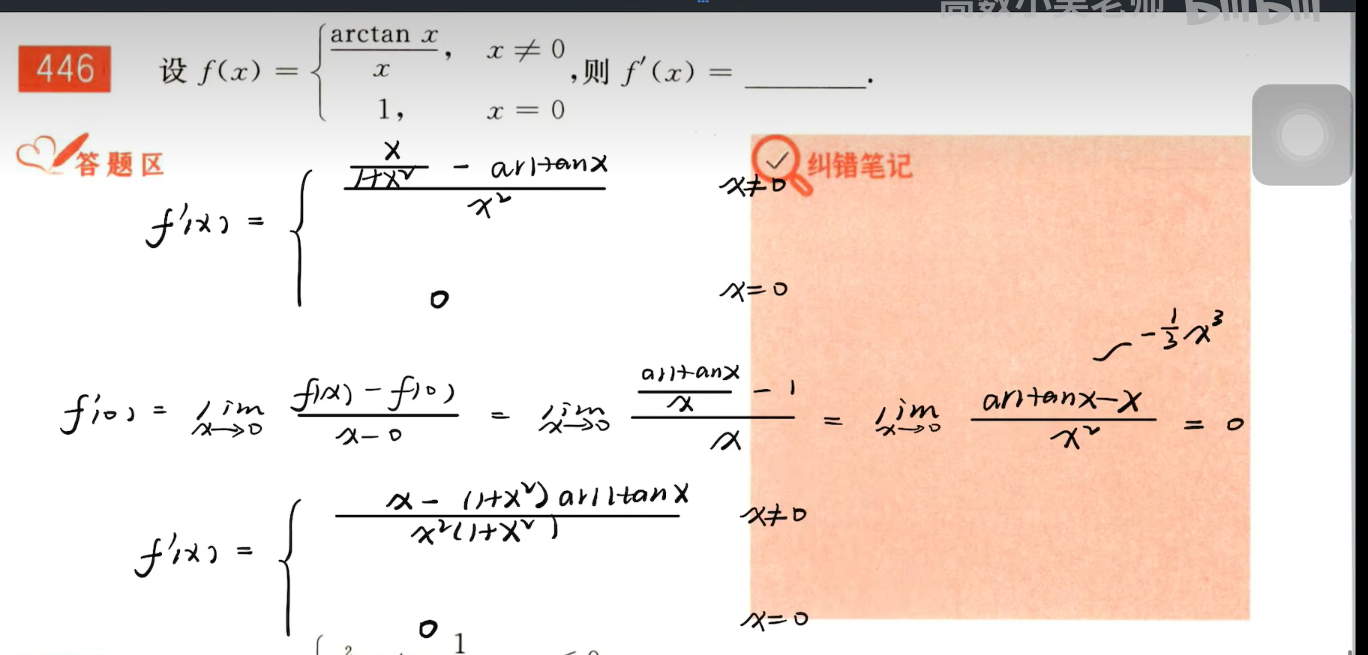 高数小美老师 bilibili
446 设 f(x) = { arctan x / x, x ≠ 0
1, x = 0 ,则 f′(x) = ______.
答题区
纠错笔记
f'(x) = { (x/(1+x²) - arctanx) / x² x≠0
0 x=0
-1/3 x³
f'(0) = lim x→0 (f(x) - f(0)) / (x-0) = lim x→0 (arctanx/x - 1) / x = lim x→0 (arctanx-x) / x² = 0
f'(x) = { (x - (1+x²) arctanx) / (x²(1+x²)) x≠0
0 x=0